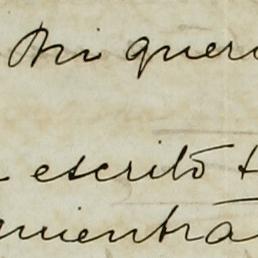 Mi quer
escrito t
mientra